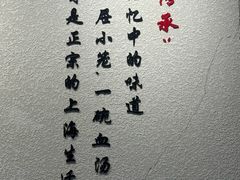 承
忆中的味道
屉小笼、一碗血汤
是正宗的上海生